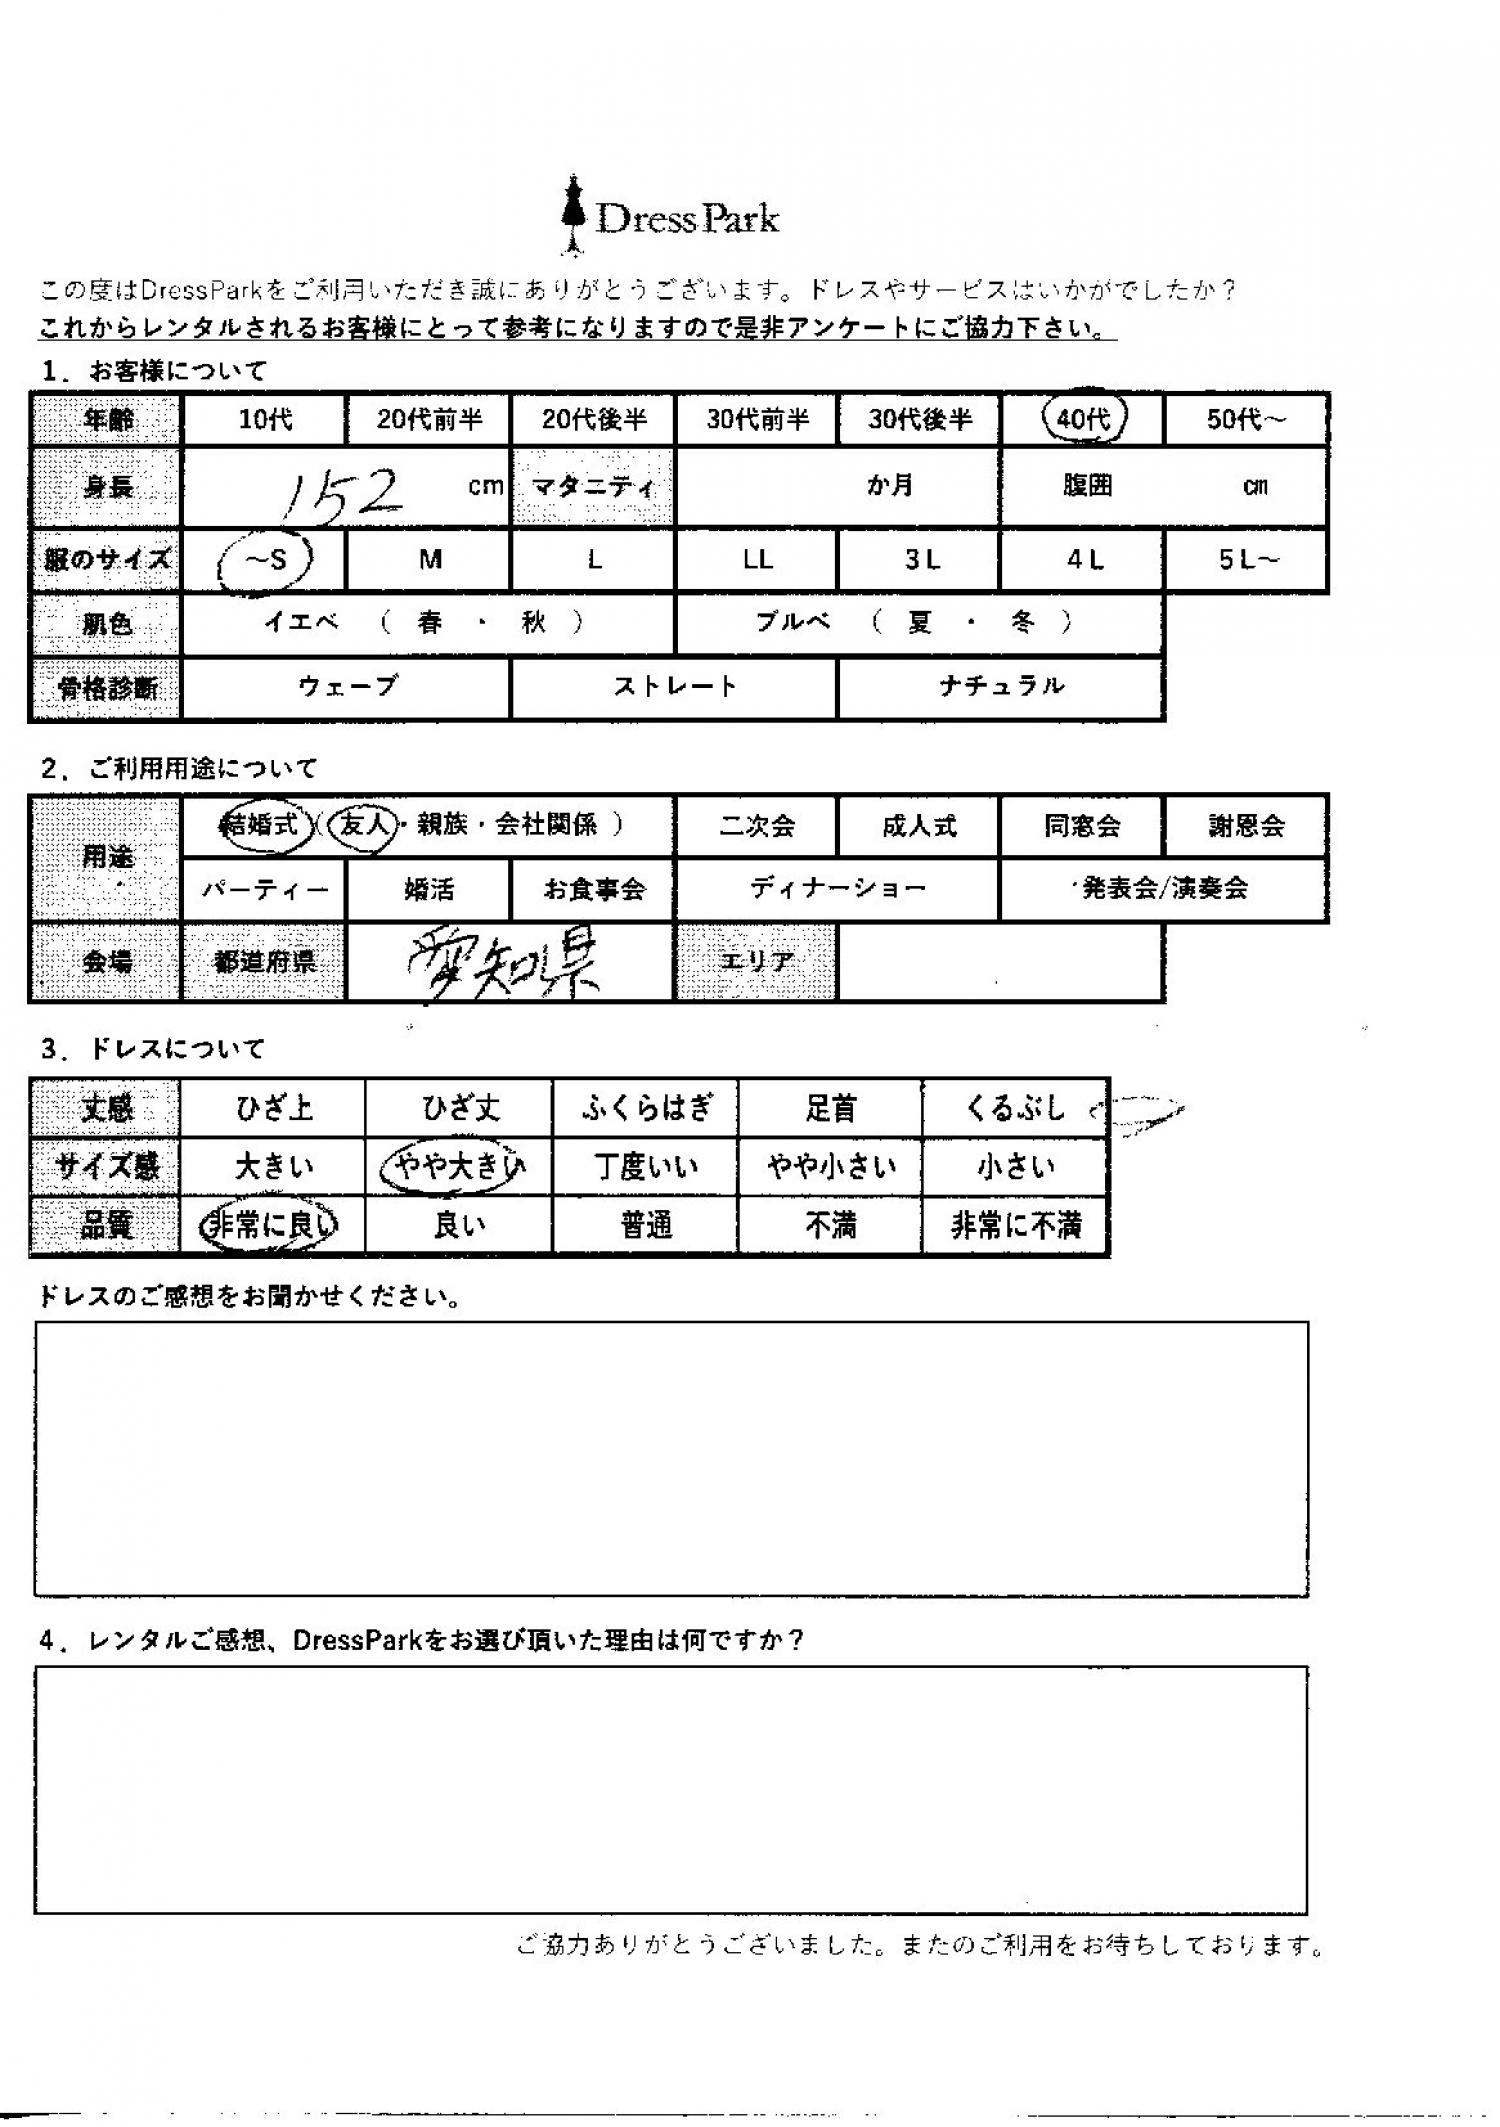 DressPark
この度はDressParkをご利用いただき誠にありがとうございます。ドレスやサービスはいかがでしたか？
これからレンタルされるお客様にとって参考になりますので是非アンケートにご協力下さい。
1．お客様について
年齢 10代 20代前半 20代後半 30代前半 30代後半 40代 50代～
身長 152 cm マタニティ か月 腹囲 cm
服のサイズ ～S M L LL 3L 4L 5L～
肌色 イエベ （ 春 ・ 秋 ） ブルベ （ 夏 ・ 冬 ）
骨格診断 ウェーブ ストレート ナチュラル
2．ご利用用途について
用途 結婚式（ 友人・親族・会社関係 ） 二次会 成人式 同窓会 謝恩会
パーティー 婚活 お食事会 ディナーショー 発表会/演奏会
会場 都道府県 愛知県 エリア
3．ドレスについて
丈感 ひざ上 ひざ丈 ふくらはぎ 足首 くるぶし
サイズ感 大きい やや大きい 丁度いい やや小さい 小さい
品質 非常に良い 良い 普通 不満 非常に不満
ドレスのご感想をお聞かせください。
4．レンタルご感想、DressParkをお選び頂いた理由は何ですか？
ご協力ありがとうございました。またのご利用をお待ちしております。